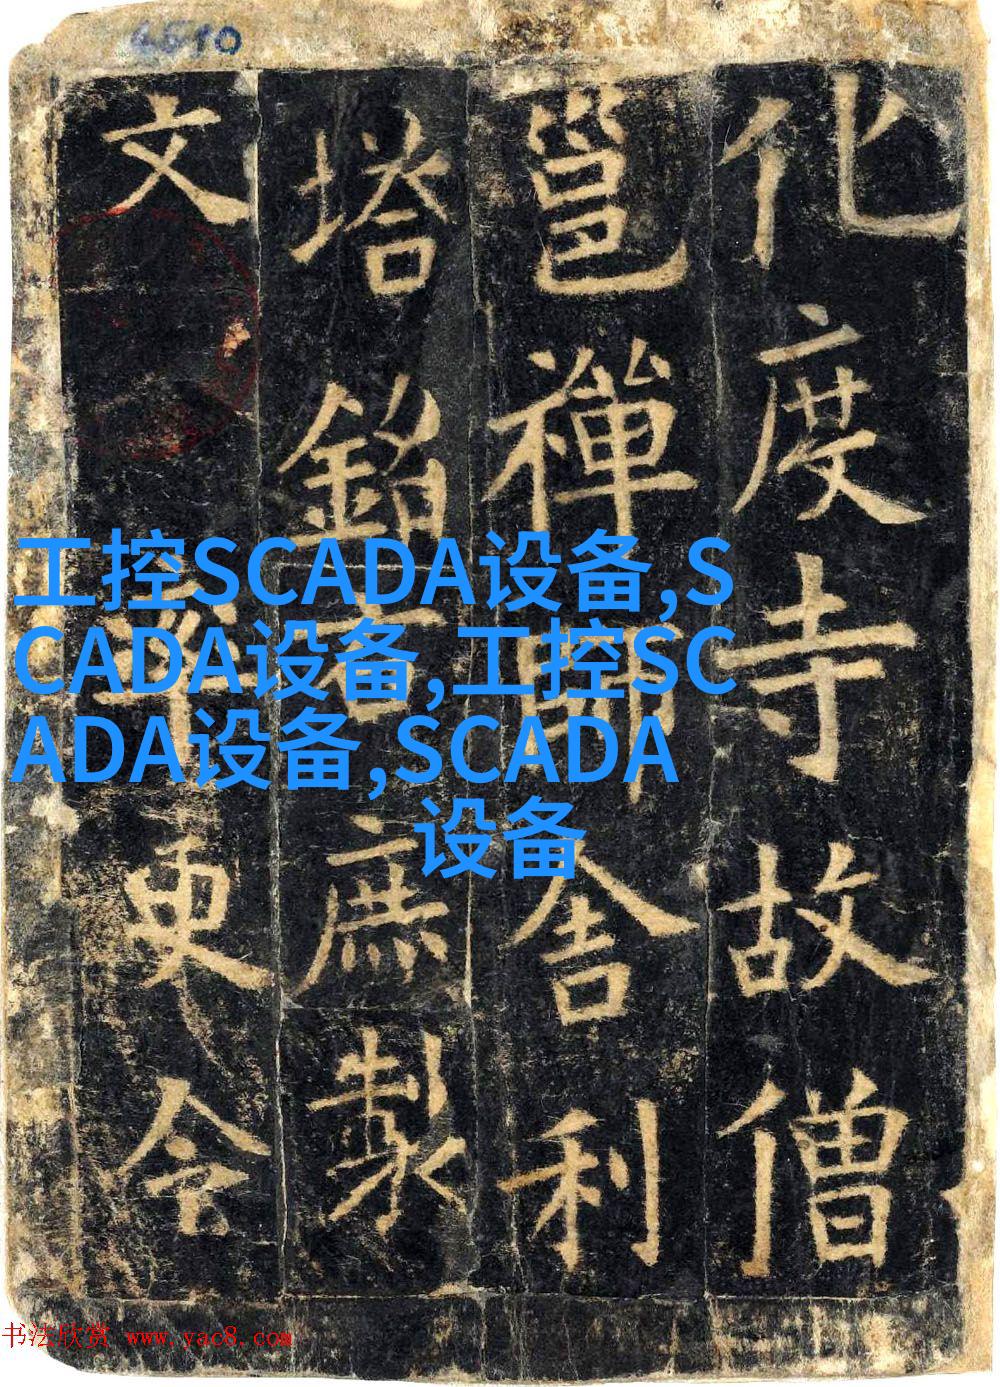 化度寺故僧
邕禪師舍利
塔銘庶製
文率更令
工控SCADA设备,S
CADA设备,工控SC
ADA设备,SCADA
设备
书法欣赏 www.yac8.com